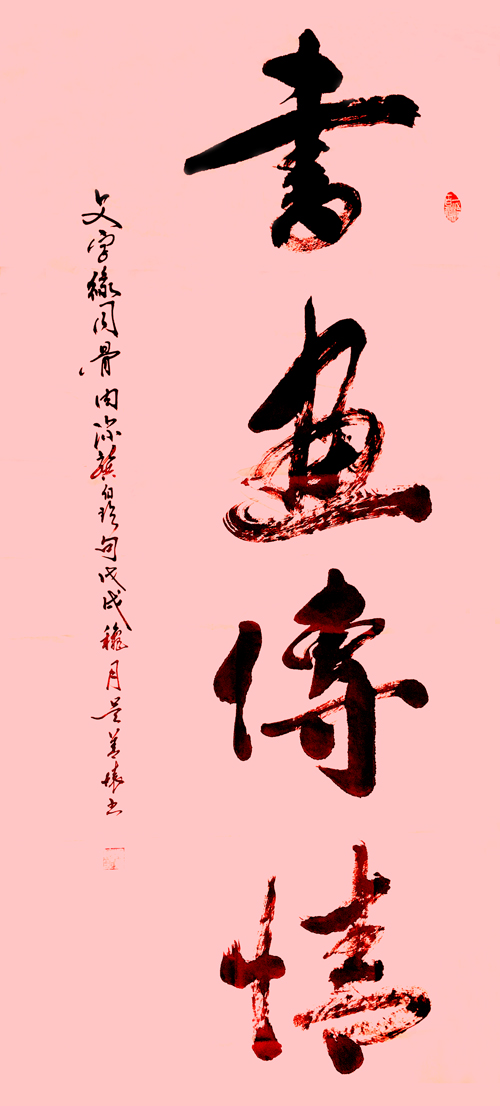 書畫傳情
文字緣同骨肉深龔自珍句戊戌穐月吳善懷書